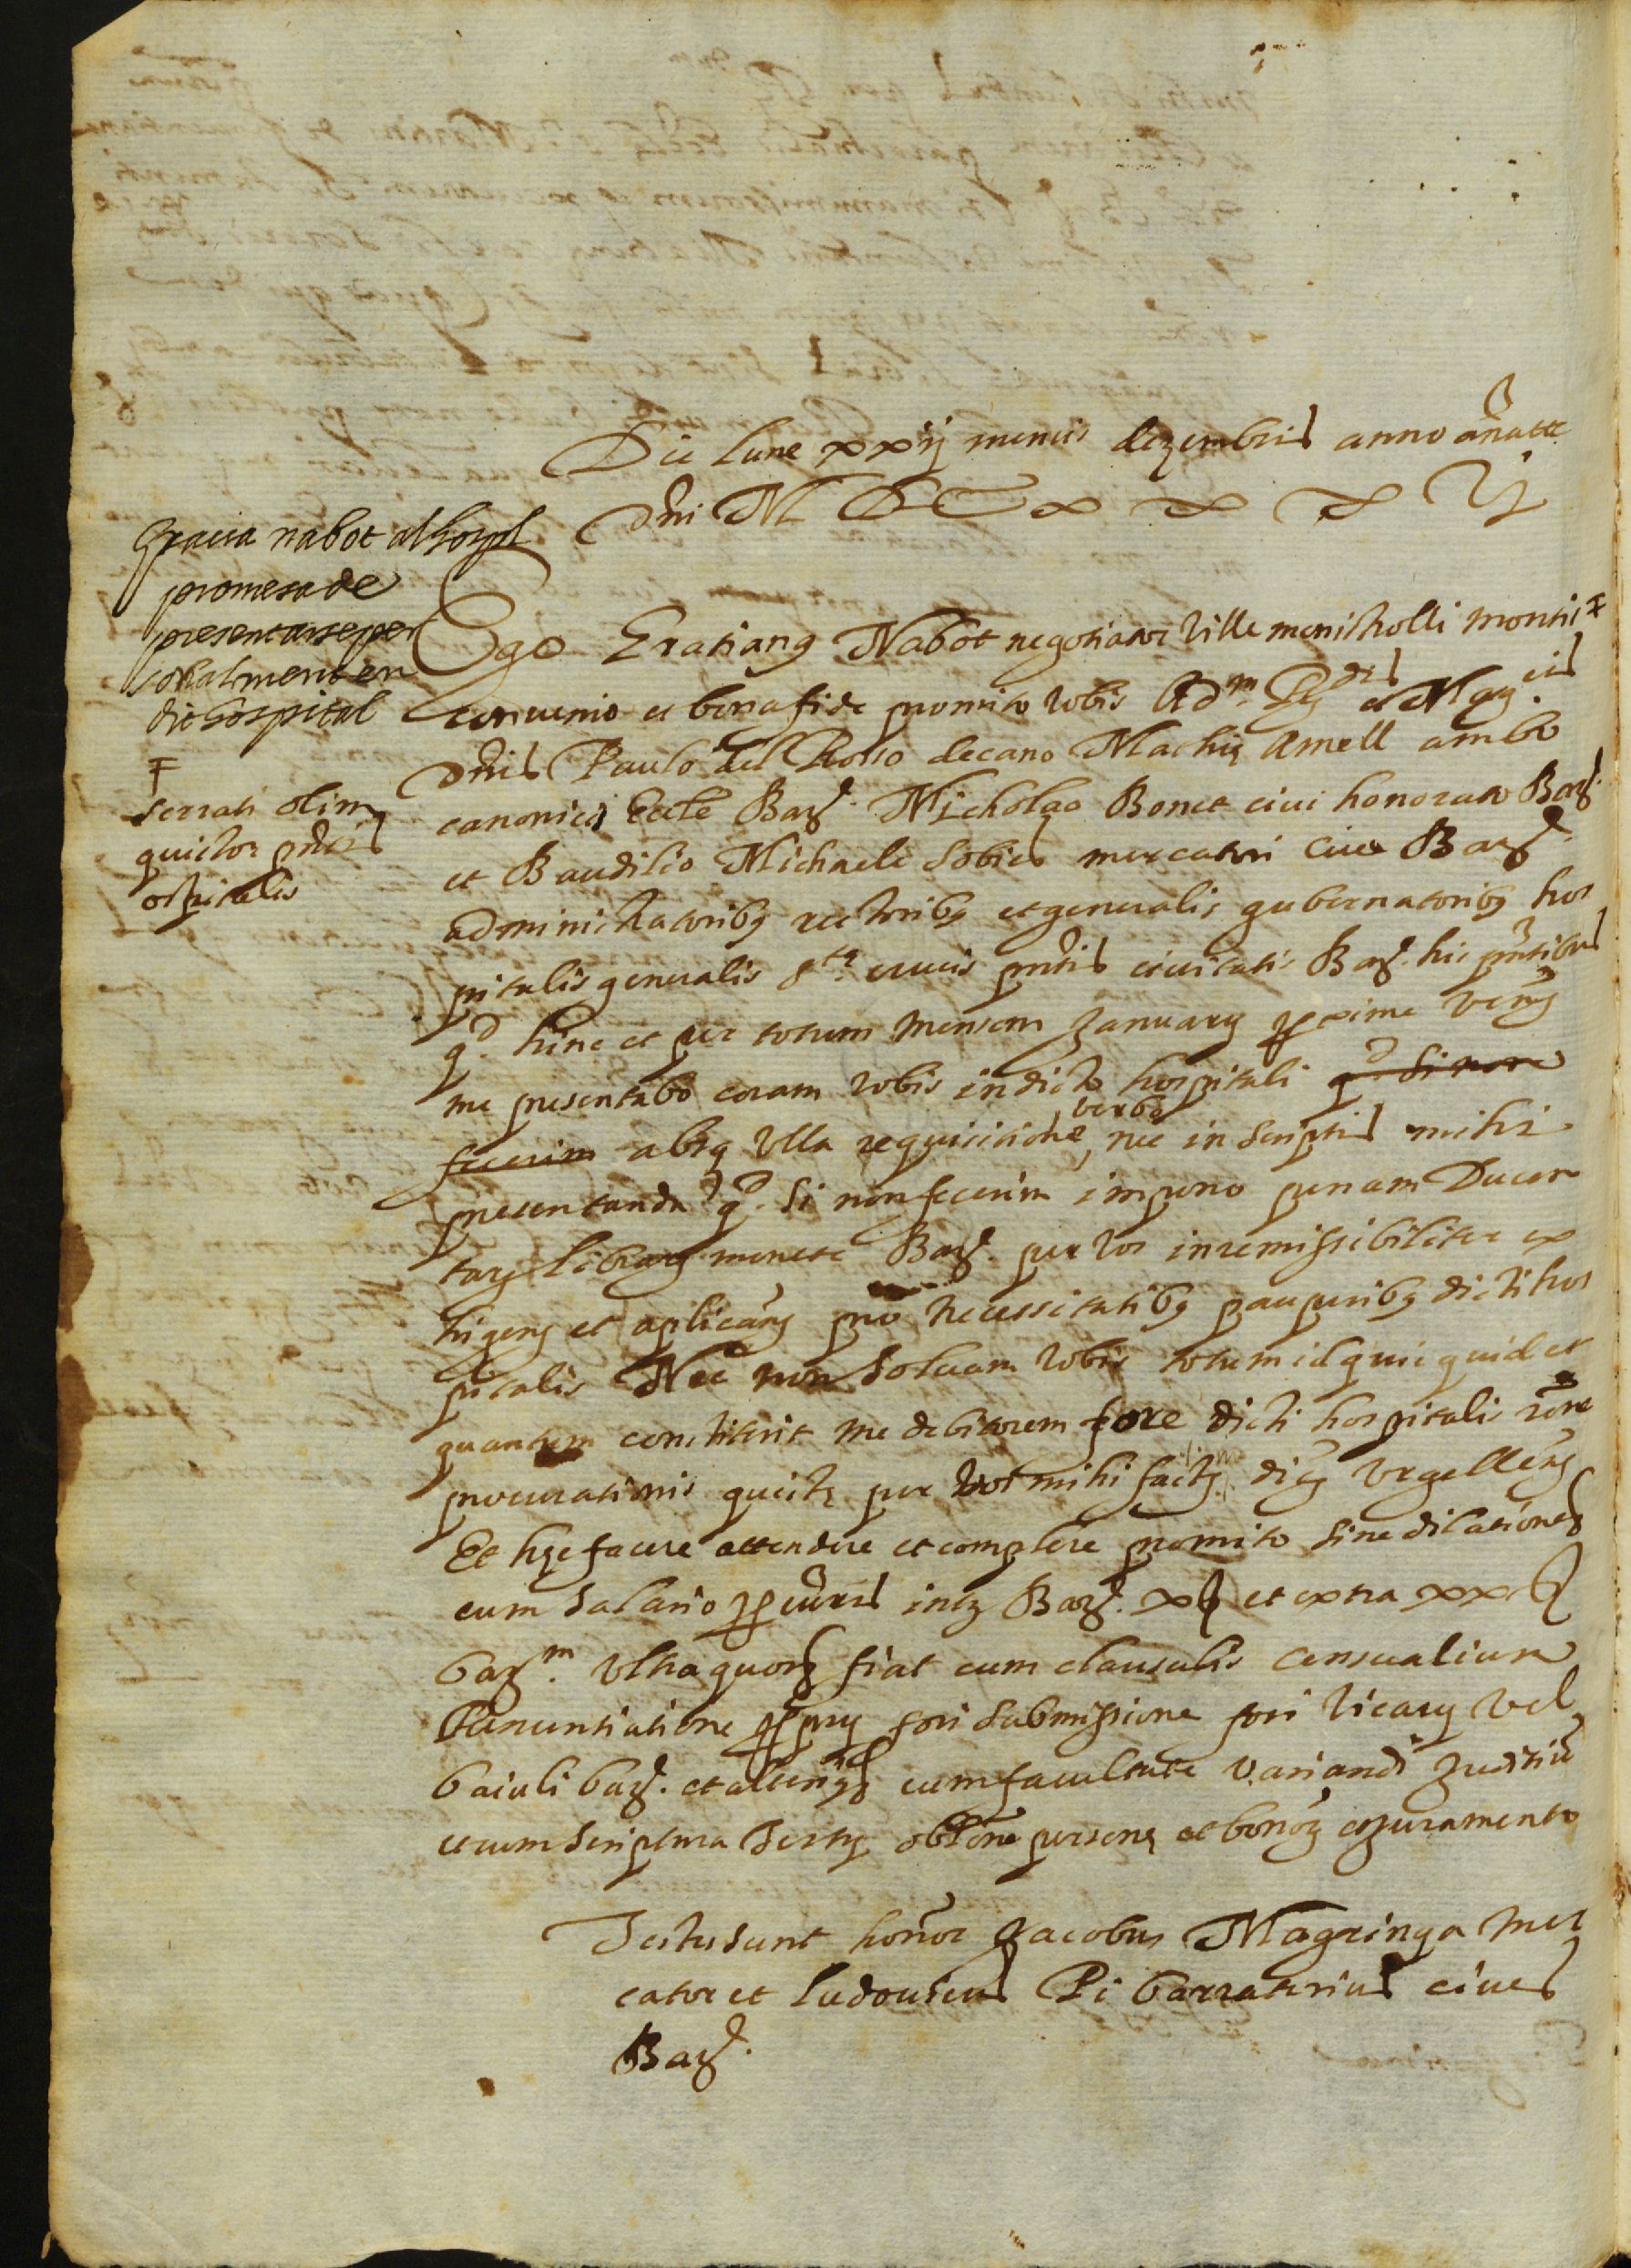 Die lune xxij mensis dezembris anno a natte
Dni M D C x x x ij
Gracia nabot al hospl
promesa de
presentarse per
sonalment en
dit hospital
Ŧ
serrati olim
quistor pntis
ospitalis
Ego Gratianus Nabot negotiator ville monistrolli montis Ŧ
convenio et bona fide promito vobis Adm. Rdis et Magcis
Dnis Paulo del Rosso decano Mathie Amell ambo
canonicis Eccle Barł. Micholao Bonet civi honorato Barł.
et Baudilio Michaele Sobies mercatori cive Barł.
administratoribus rectoribus et generalis gubernatoribus hos
pitalis generalis Ste crucis pntis civitatis Barł. his pntibus
qd. hinc et per totum mensem Januarij proxime vent
me presentabo coram vobis in dicto hospitali qd. si non
fecerim absq ulla requisitione verbo nec in scriptis mihi
presentanda qd. si non fecerim impono penam Ducen
tarum librarum monete Barł. per vos inremissibiliter ex
higens et aplicans pro necessitatibus pauperibus dicti hos
pitalis Nec non solvam vobis totum id quicquid et
quantum constiterit me debitorem fore dicti hospitali rone
procurationis questus per vos mihi facte dics Urgellens
Et hec facere attendere et complere promito sine dilatione
cum salario procuris intus Barł. x ß et extra xx ß
barłm. Ultra quorum fiat cum clausulis censualium
Renuntiatione proprij fori submissione fori vicarij vel
baiuli barł. et alterius cum facultate variandi Juditiu
et cum scriptura tertij oblone persone et bonorum et juramento
Testes sunt honor Jacobus Magringa mer
cator et ludovicus Pi barraterius cives
Barł.